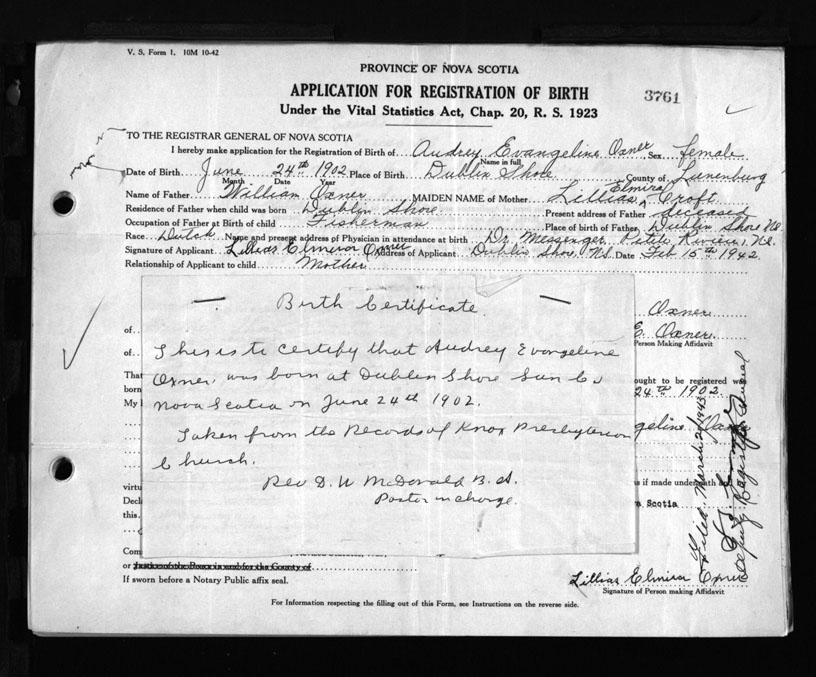 V. S. Form 1. 10M 10-42
PROVINCE OF NOVA SCOTIA
APPLICATION FOR REGISTRATION OF BIRTH
3761
Under the Vital Statistics Act, Chap. 20, R. S. 1923
TO THE REGISTRAR GENERAL OF NOVA SCOTIA
I hereby make application for the Registration of Birth of Audrey Evangeline Oxner Sex female
Name in full
Date of Birth June 24th 1902 Place of Birth Dublin Shore County of Lunenburg
Month Date Year
Name of Father William Oxner MAIDEN NAME of Mother Lillias Elmira Croft
Residence of Father when child was born Dublin Shore Present address of Father deceased
Occupation of Father at Birth of child Fisherman Place of birth of Father Dublin Shore NS.
Race Dutch Name and present address of Physician in attendance at birth Dr Messenger, Petite Riviere, NS.
Signature of Applicant Lillias Elmira Oxner Address of Applicant Dublin Shore, NS. Date Feb 15th 1942.
Relationship of Applicant to child Mother
Birth Certificate.
This is to certify that Audrey Evangeline
Oxner, was born at Dublin Shore Lun Co
Nova Scotia on June 24th 1902.
Taken from the Records of Knox Presbyterian
Church.
Rev D. W McDonald B. A.
Pastor in charge.
of
Oxner
of
E. Oxner
Person Making Affidavit
That
ought to be registered was
born
24th 1902.
My
geline Oxner
virtu
is if made under oath and
Decl
Scotia
this
Com
or Justice of the Peace in and for the County of
If sworn before a Notary Public affix seal.
Lillias Elmira Oxner
Signature of Person making Affidavit
For Information respecting the filling out of this Form, see Instructions on the reverse side.
Filed March 2/1943
Deputy Registrar General